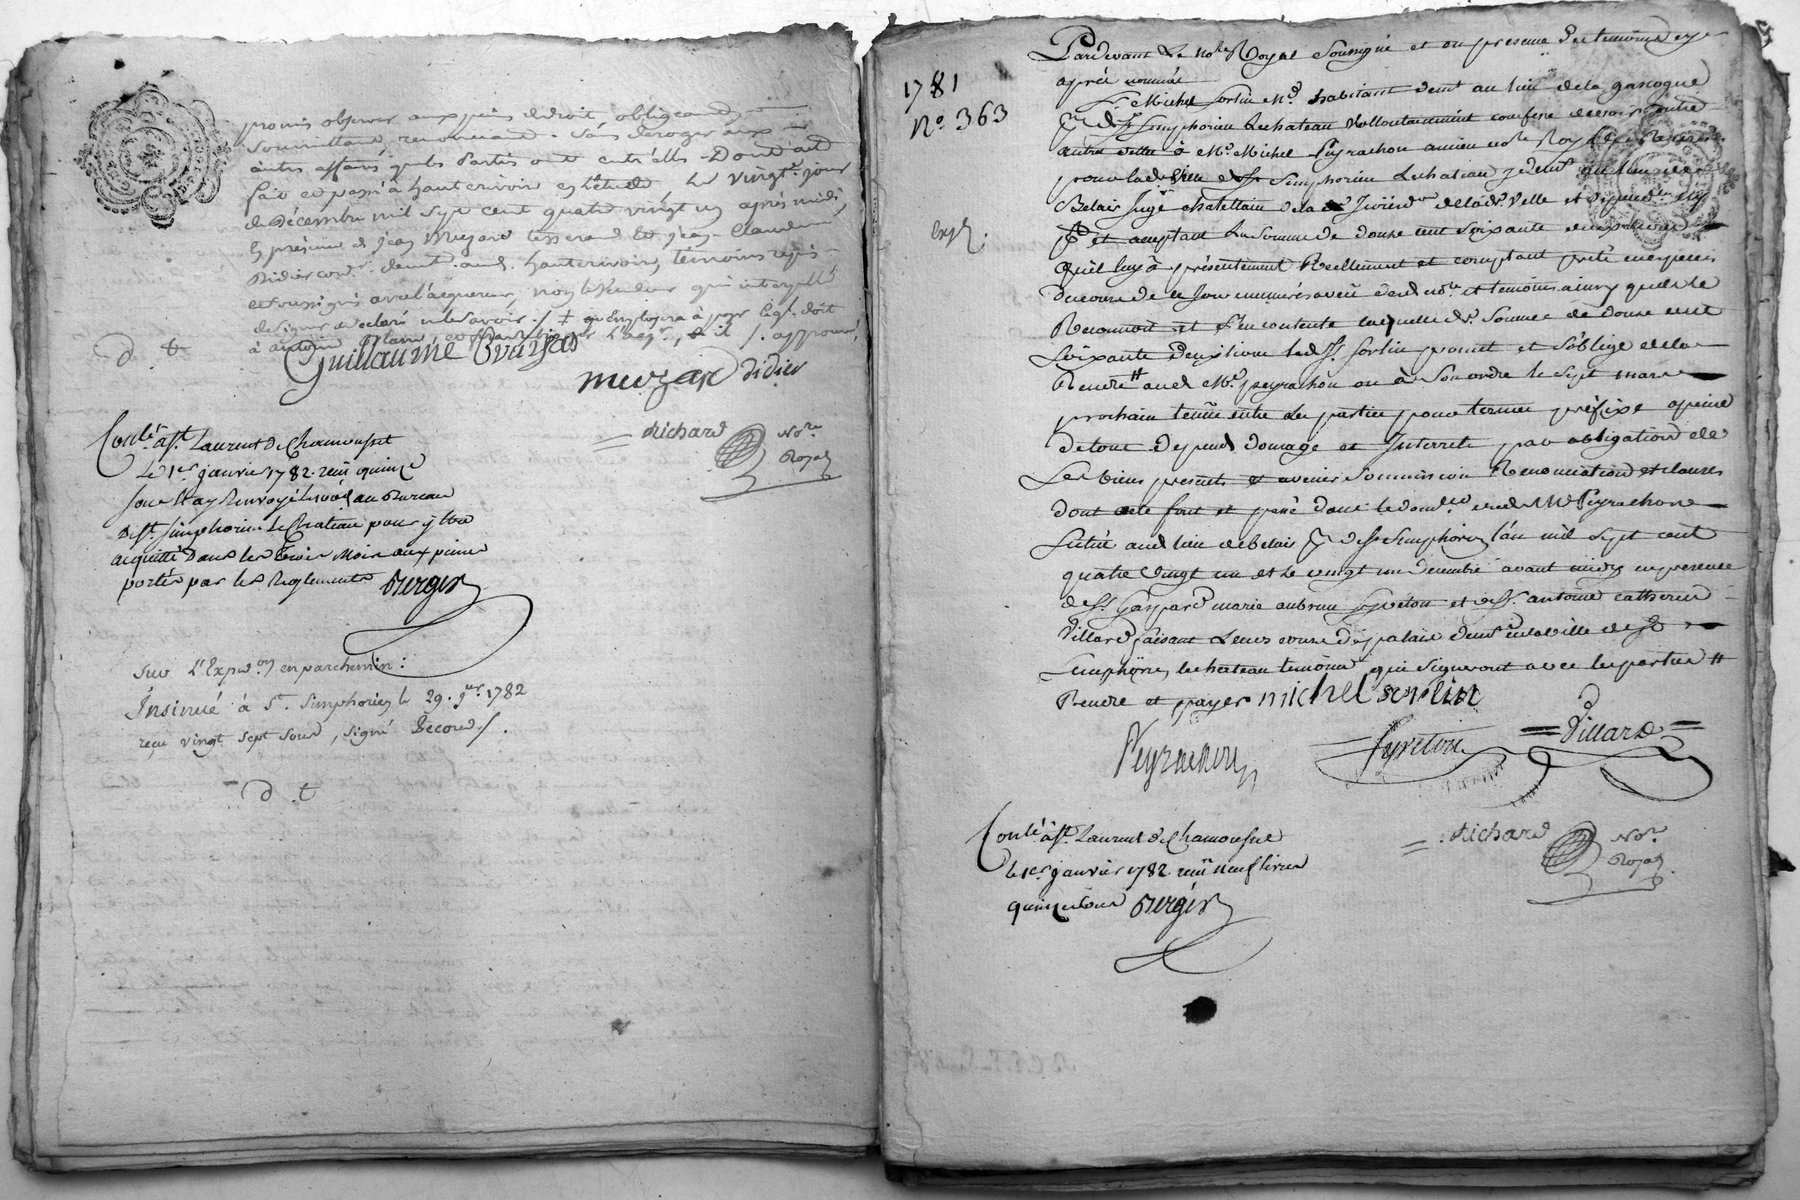 promis observer aux peines de droit, obligeant,
soumettant, renonceant. Sans deroger aux
autres affaires que les Parties ont entr'elles. Dont acte
fait et passé à hauterivoir en l'étude, le vingt.e jour
de Décembre mil sept cent quatre vingt un après midi,
en présence de jean Muzard tisserand et jean-Claude
Didier demt. aud. hauterivoir, témoins requis
et soussignés avec l'acquereur, non le Vendeur qui interpellé
de signer a declaré ne le savoir ./.
à antoine
d t
Guillaume
muzard didier
Richard No.re
Royal
Conlé. à St. Laurent de Chamousset
Le 1er janvier 1782. reçu quinze
sous et ay Renvoyé au Bureau
de St. Simphorien Le Chateau pour y être
acquitté Dans les Trois Mois aux peines
portées par les Reglements Berger
sur L'Exp.on en parchemin :
Insinué à St. Simphorien le 29. 1782
reçu vingt sept sous, signé Decours /.
d. t.
Pardevant Le No.re Royal Soussigné et en presence des temoins cy
après nommés
1781
N.o 363
S. Michel sorlin M.d habitant demt au lieu de la gascogne
P.sse de St. Simphorien Lechateau Vollontairement confesse devoir
à M.e Michel Peyrachon ancien no.re Royal
pour la de Ville de St Simphorien Lechateau y demt au lieu de
Belair Juge chatellain de la de la d. Ville
exp.
et acceptant La Somme de douze cent soixante
qu'il luy à présentement Reellement et comptant prété en especes
de cours de ce Jour nombrées a veue dud no.re et temoins ainsy qu'il le
Reconnoit et s'en contente laquelle de. Somme de douze cent
soixante led. Sr. sorlin promet et s'oblige de la
Rendre # aud M.e peyrachon ou à son ordre le sept mars
prochain tems entre les parties pour terme préfixe apeine
de tous depens domage et Interrets par obligation de
Ses biens presents et avenir Soummission Renonciation et clauses
dont acte fait et passé dans le dom.e dud M.e Peyrachon
situé aud lieu de belair P.sse de St Simphorien l'an mil sept cent
quatre vingt un et le vingt un Decembre avant midy en presence
de Sr. Gaspard marie aubrun syveton et de Sr. antoine catherin
Villard faisant Leurs cours de palais demt en la ville de St
Simphorien lechateau temoins qui signeront avec les parties #
Rendre et payer michel sorlin
Peyrachon Syveton Villard
Richard No.re
Royal
Conlé. à St. Laurent de Chamousset
le 1er. janvier 1782. reçu neuf livres
quinze sous Berger